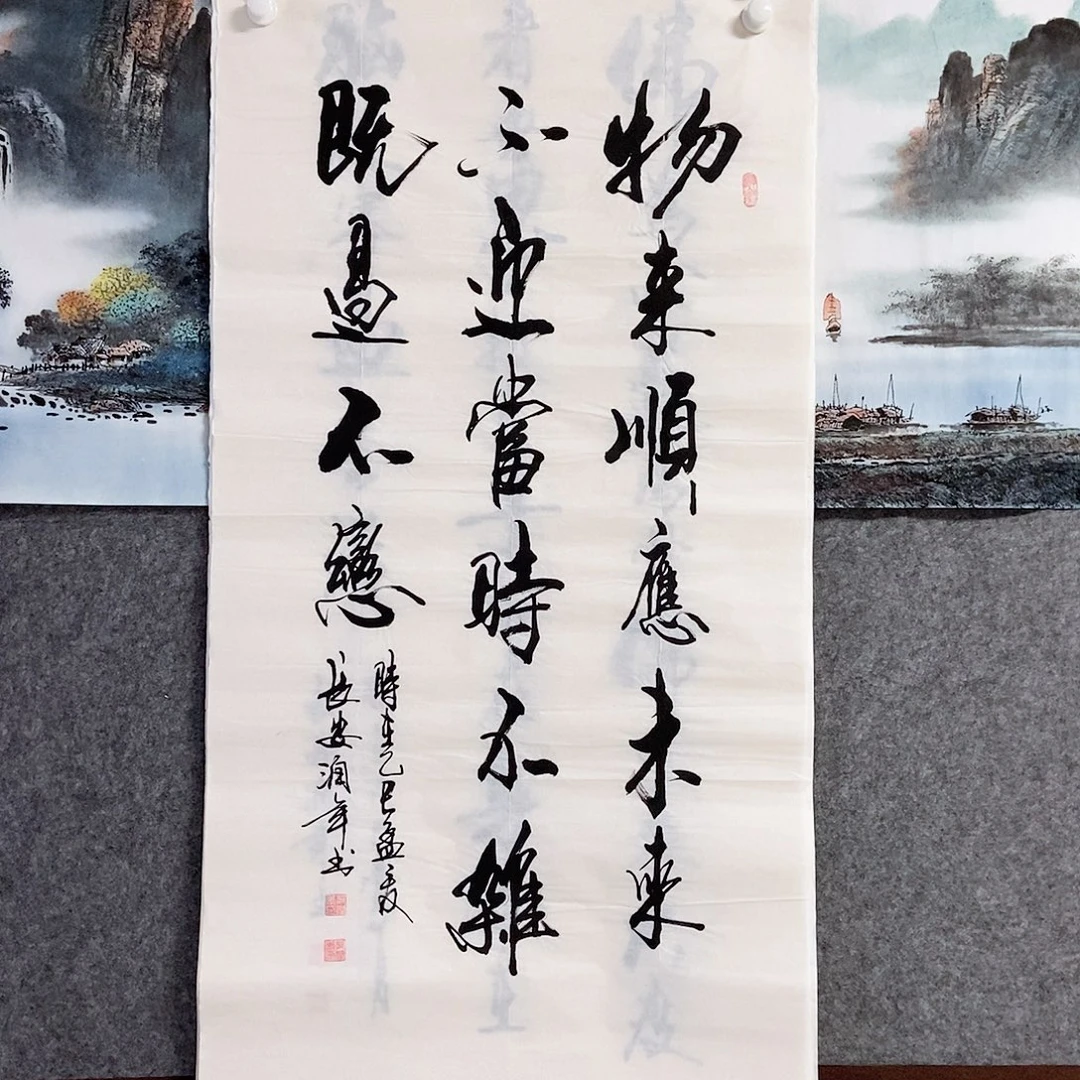 物来順應未来
不迎當時不雜
既過不戀
時在乙巳孟夏
長安润年书